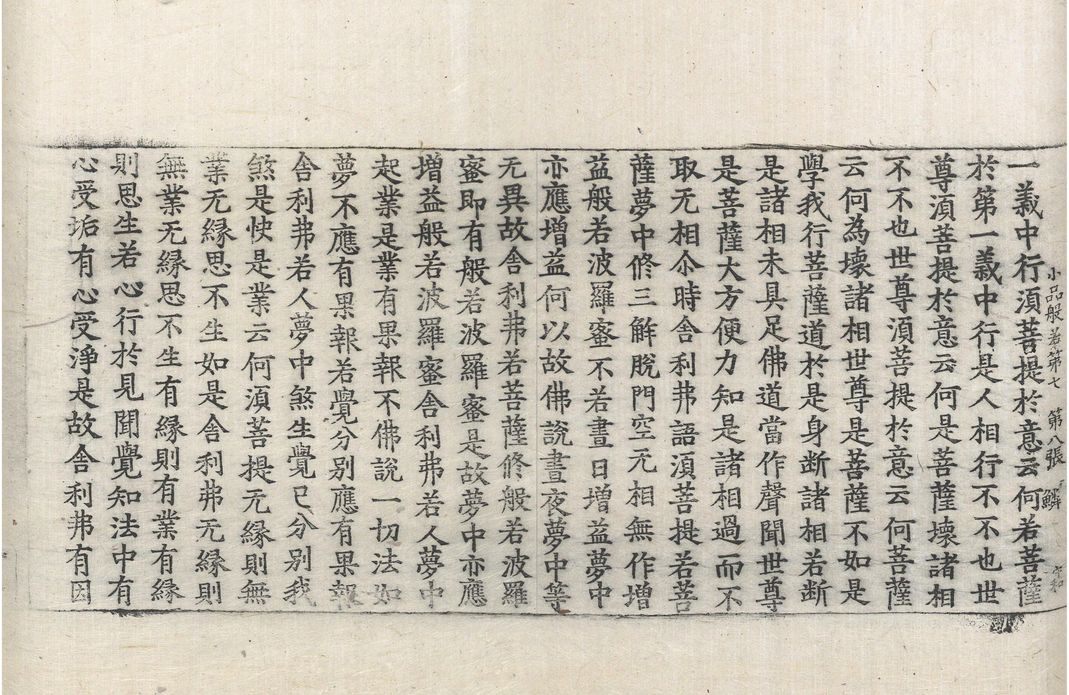 小品般若第七　第八張　鱗
一義中行湏菩提於意云何若菩薩
於第一義中行是人相行不不也世
尊湏菩提於意云何是菩薩壞諸相
不不也世尊湏菩提於意云何菩薩
云何為壞諸相世尊是菩薩不如是
學我行菩薩道於是身断諸相若断
是諸相未具足佛道當作聲聞世尊
是菩薩大方便力知是諸相過而不
取无相尒時舍利弗語湏菩提若菩
薩夢中修三解脫門空无相無作增
益般若波羅蜜不若晝日增益夢中
亦應增益何以故佛說晝夜夢中等
无異故舍利弗若菩薩修般若波羅
蜜即有般若波羅蜜是故夢中亦應
增益般若波羅蜜舍利弗若人夢中
起業是業有果報不佛說一切法如
夢不應有果報若覺分別應有果報
舍利弗若人夢中煞生覺已分別我
煞是快是業云何湏菩提无緣則無
業无緣思不生如是舍利弗无緣則
無業无緣思不生有緣則有業有緣
則思生若心行於見聞覺知法中有
心受垢有心受淨是故舍利弗有因